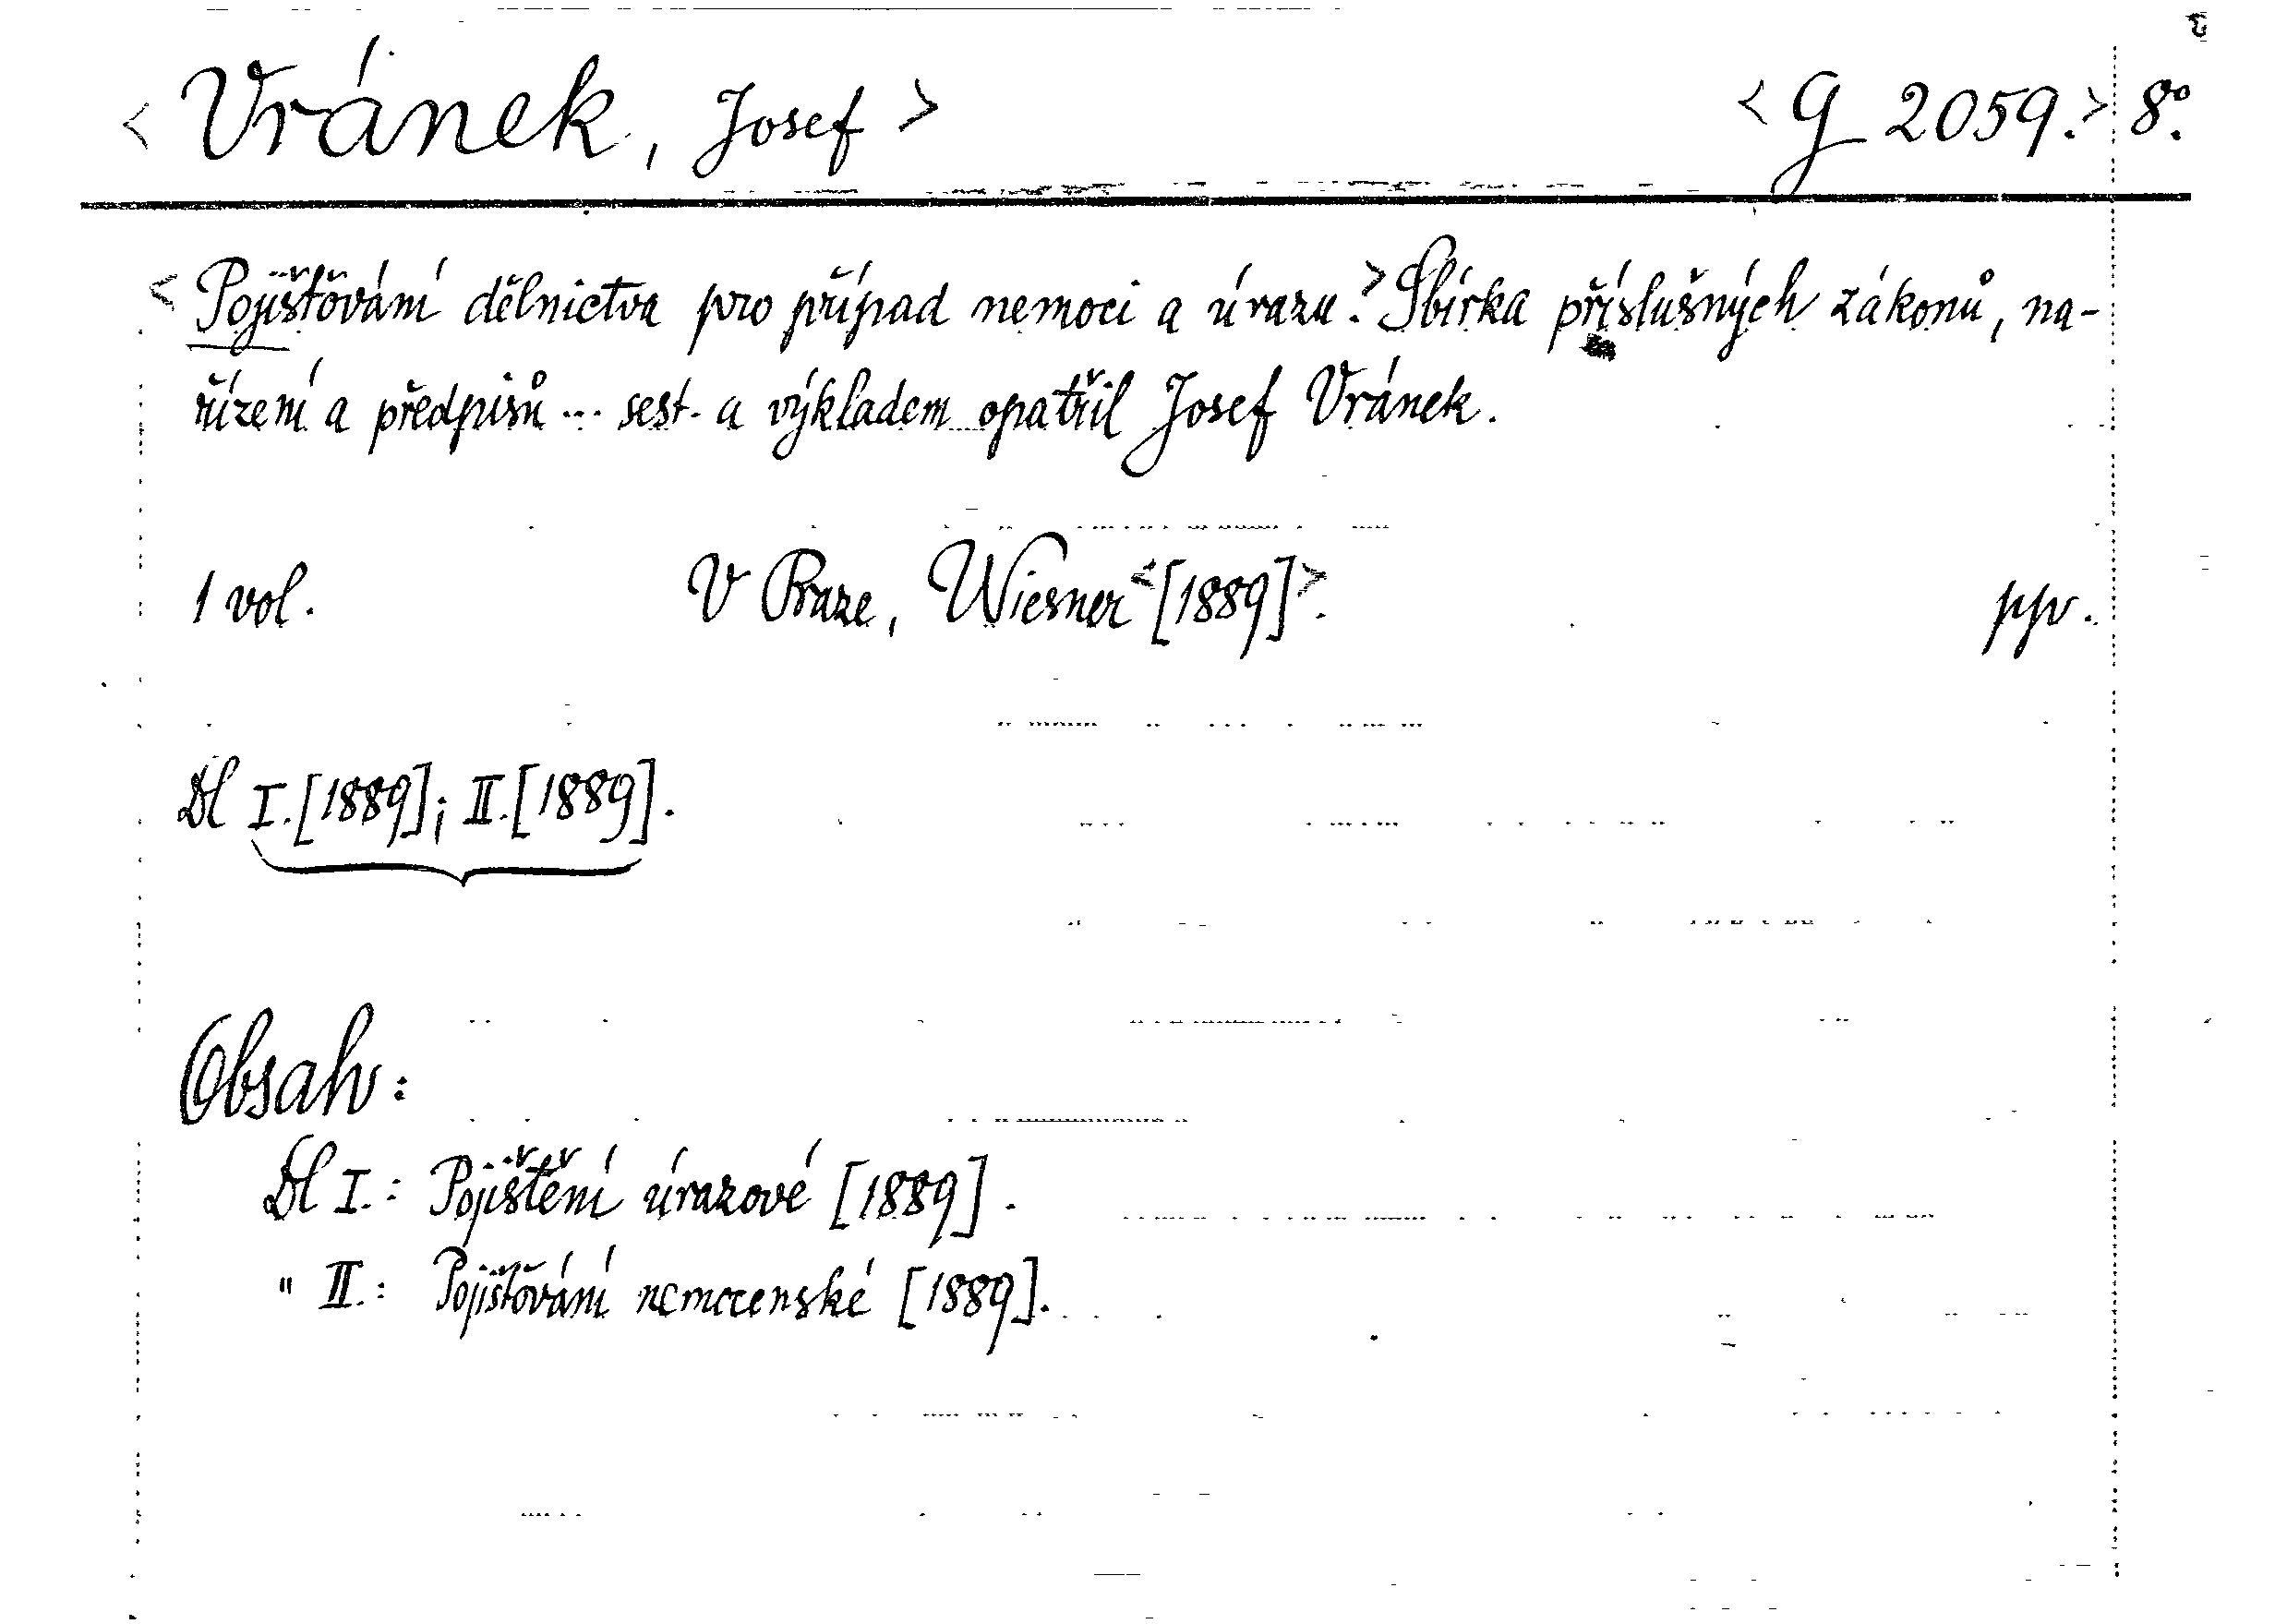 < Vránek, Josef > < G 2059. > 8º.
< Pojišťování dělnictva pro případ nemoci a úrazu. > Sbírka příslušných zákonů, na-
řízení a předpisů ... sest. a výkladem opatřil Josef Vránek.
1 vol. V Praze, Wiesner < [1889] >. ppv.
Dl I. [1889]; II. [1889].
Obsah:
Dl I.: Pojištění úrazové [1889].
" II.: Pojišťování nemocenské [1889].